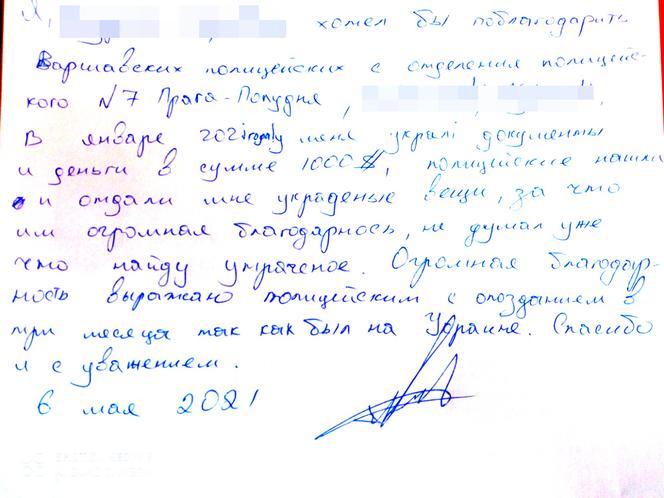 Я, хотел бы поблагодарить
Варшавских полицейских с отделения полицейс-
кого №7 Прага-Полудня,
В январе 2021 году меня украли документы
и деньги в сумме 1000$, полицейские нашли
и отдали мне украденые вещи, за что
им огромная благодарнось, не думал уже
что найду утраченое. Огромная благодар-
ность выражаю полицейским с опозданием в
три месяца так как был на Украине. Спасибо
и с уважением.
6 мая 2021